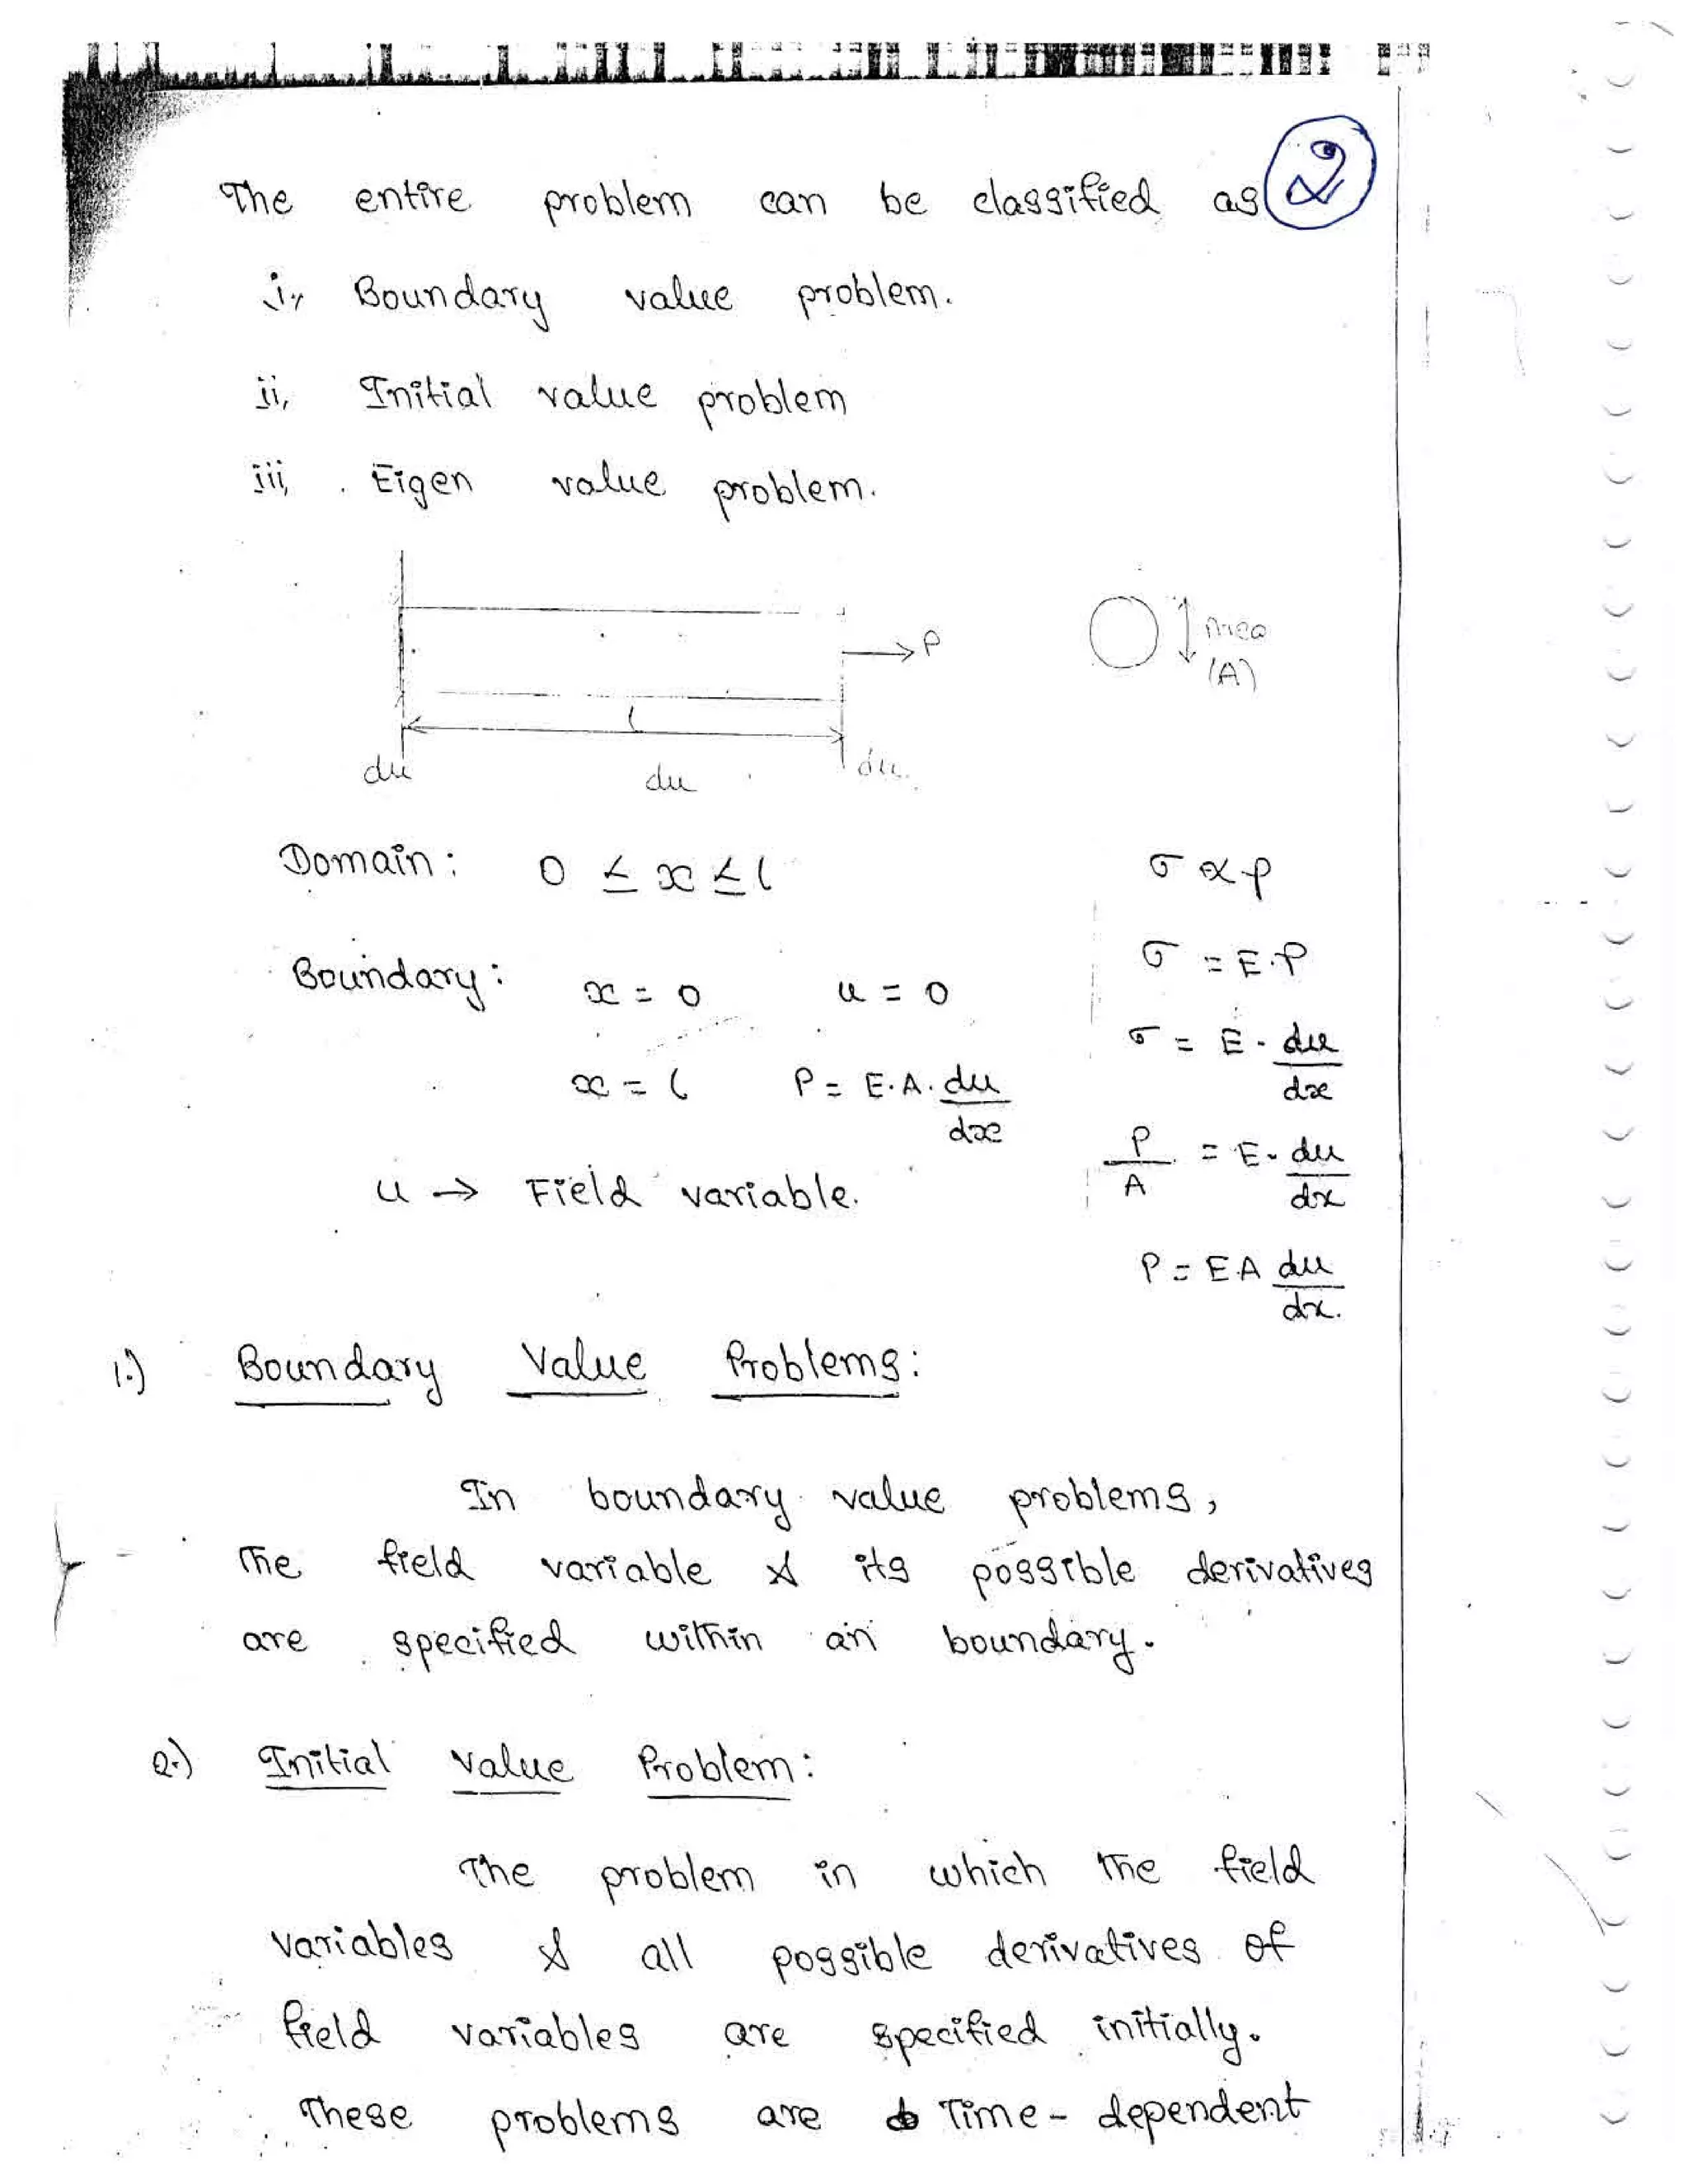 2
The entire problem can be classified as
i, Boundary value problem.
ii, Initial value problem
iii, Eigen value problem.
P
Area
(A)
l
du du du
Domain: 0 ≤ x ≤ l
σ ∝ p
σ = E.P
Boundary: x = 0 u = 0
σ = E . du/dx
x = l P = E.A. du/dx
P/A = E. du/dx
u → Field variable.
P = EA du/dx.
1.) Boundary Value Problems:
In boundary value problems,
The field variable & its possible derivatives
are specified within an boundary.
2.) Initial Value Problem:
The problem in which the field
variables & all possible derivatives of
field variables are specified initially.
These problems are Time - dependent